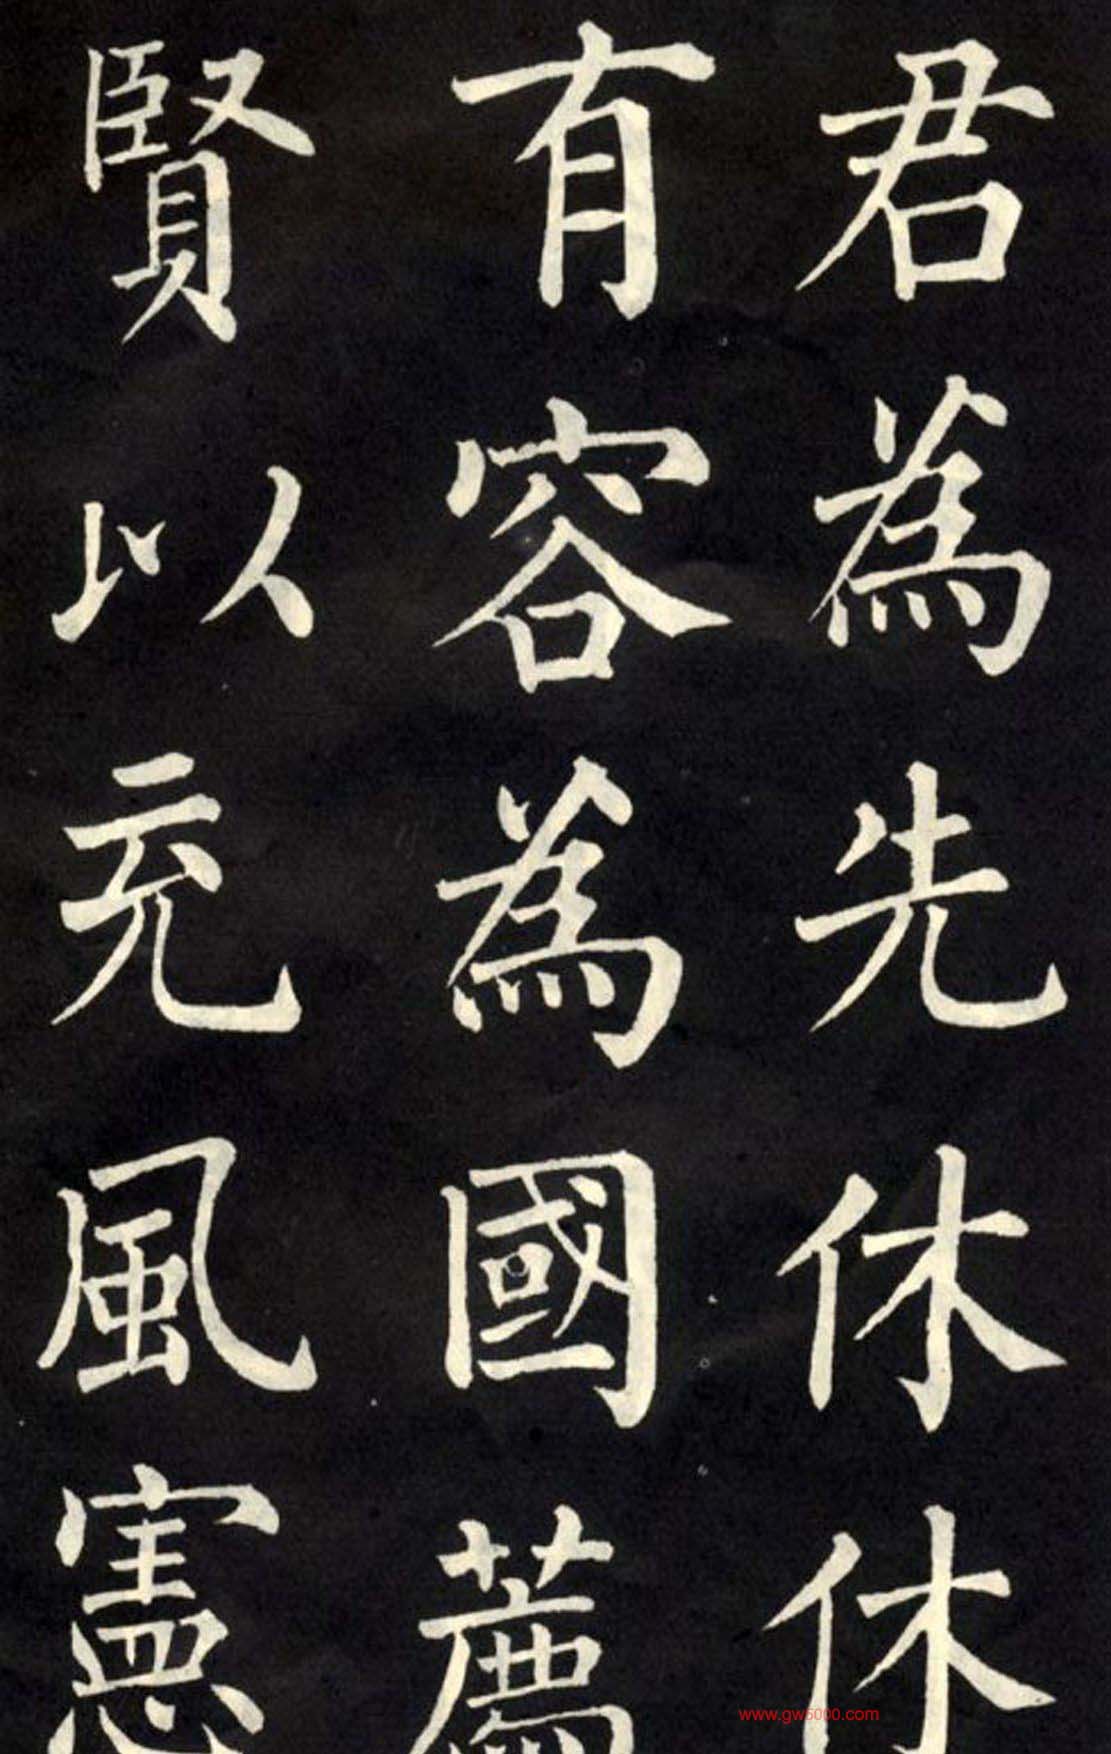 君為先休休
有容為國薦
賢以充風憲
www.gw5000.com